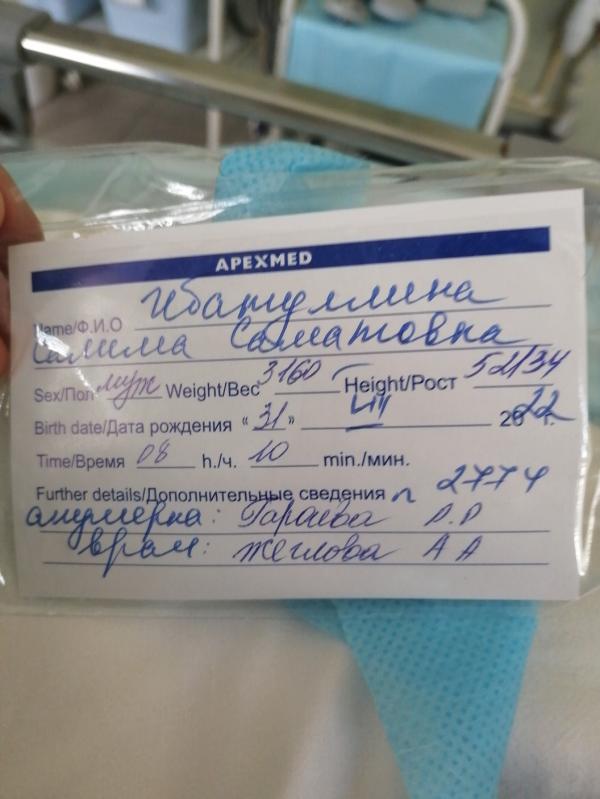 APEXMED
Name/Ф.И.О Ибатуллина
Салима Саматовна
Sex/Пол муж Weight/Вес 3160 Height/Рост 52/34
Birth date/Дата рождения «31» 2022 г.
Time/Время 08 h./ч. 10 min./мин.
Further details/Дополнительные сведения 2774
акушерка: Гараева Р.Р
врач: Жеглова А А